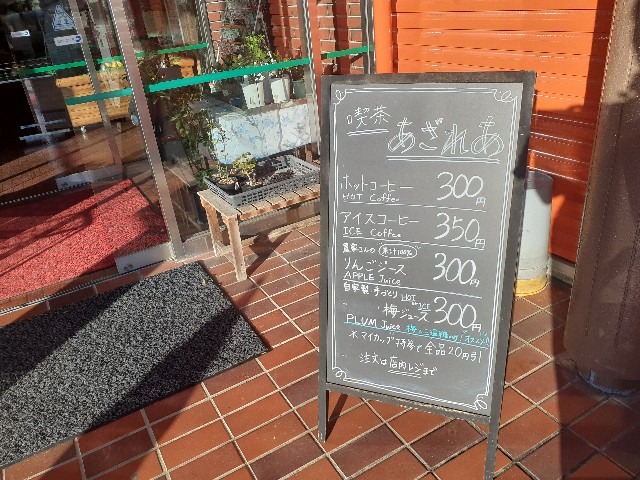 喫茶
あざれあ
ホットコーヒー 300円
HOT Coffee
アイスコーヒー 350円
ICE Coffee
農家さんの 果汁100%
りんごジース 300円
APPLE Juice
自家製 手づくり HOT or ICE
梅ジュース 300円
PLUM Juice
※マイカップ持参で全品20円引
注文は店内レジまで